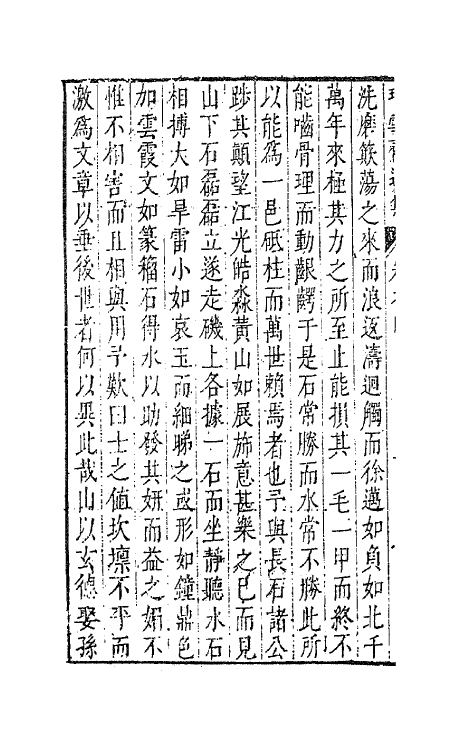 洗磨簸蕩之來而浪返濤迴觸而徐邁如負如北千
萬年來極其力之所至止能損其一毛一甲而終不
能嚙骨理而動齦齶于是石常勝而水常不勝此所
以能爲一邑砥柱而萬世賴焉者也予與長石諸公
陟其顛望江光皓淼黃山如展旆意甚樂之已而見
山下石磊磊立遂走磯上各據一石而坐靜聽水石
相搏大如旱雷小如哀玉而細睇之或形如鐘鼎色
加雲霞文如篆籀石得水以助發其妍而益之媚不
惟不相害而且相與用予歎曰士之值坎壈不平而
激爲文章以垂後世者何以異此哉山以玄德娶孫